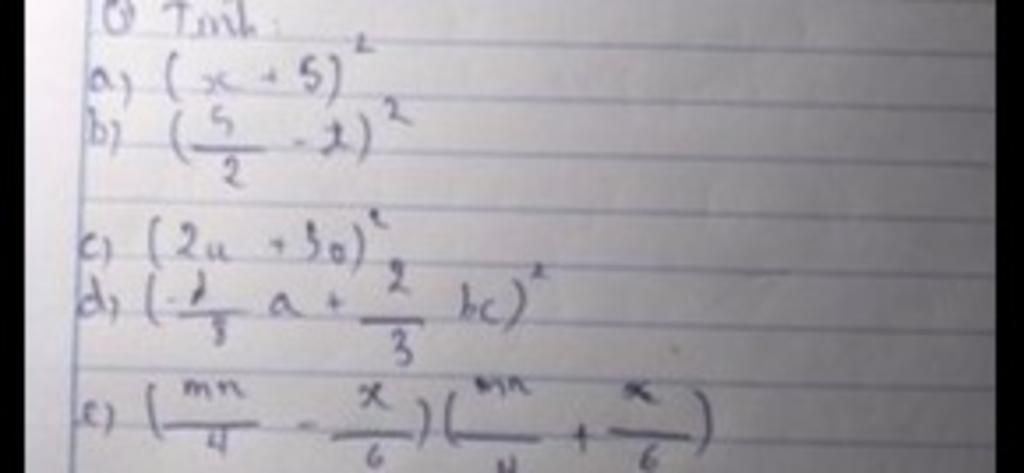 Tính:
a) (x + 5)²
b) (5/2 - t)²
c) (2u + 3v)²
d) (-1/8 a + 2/3 bc)²
e) (mn/4 - x/6)(mn/4 + x/6)